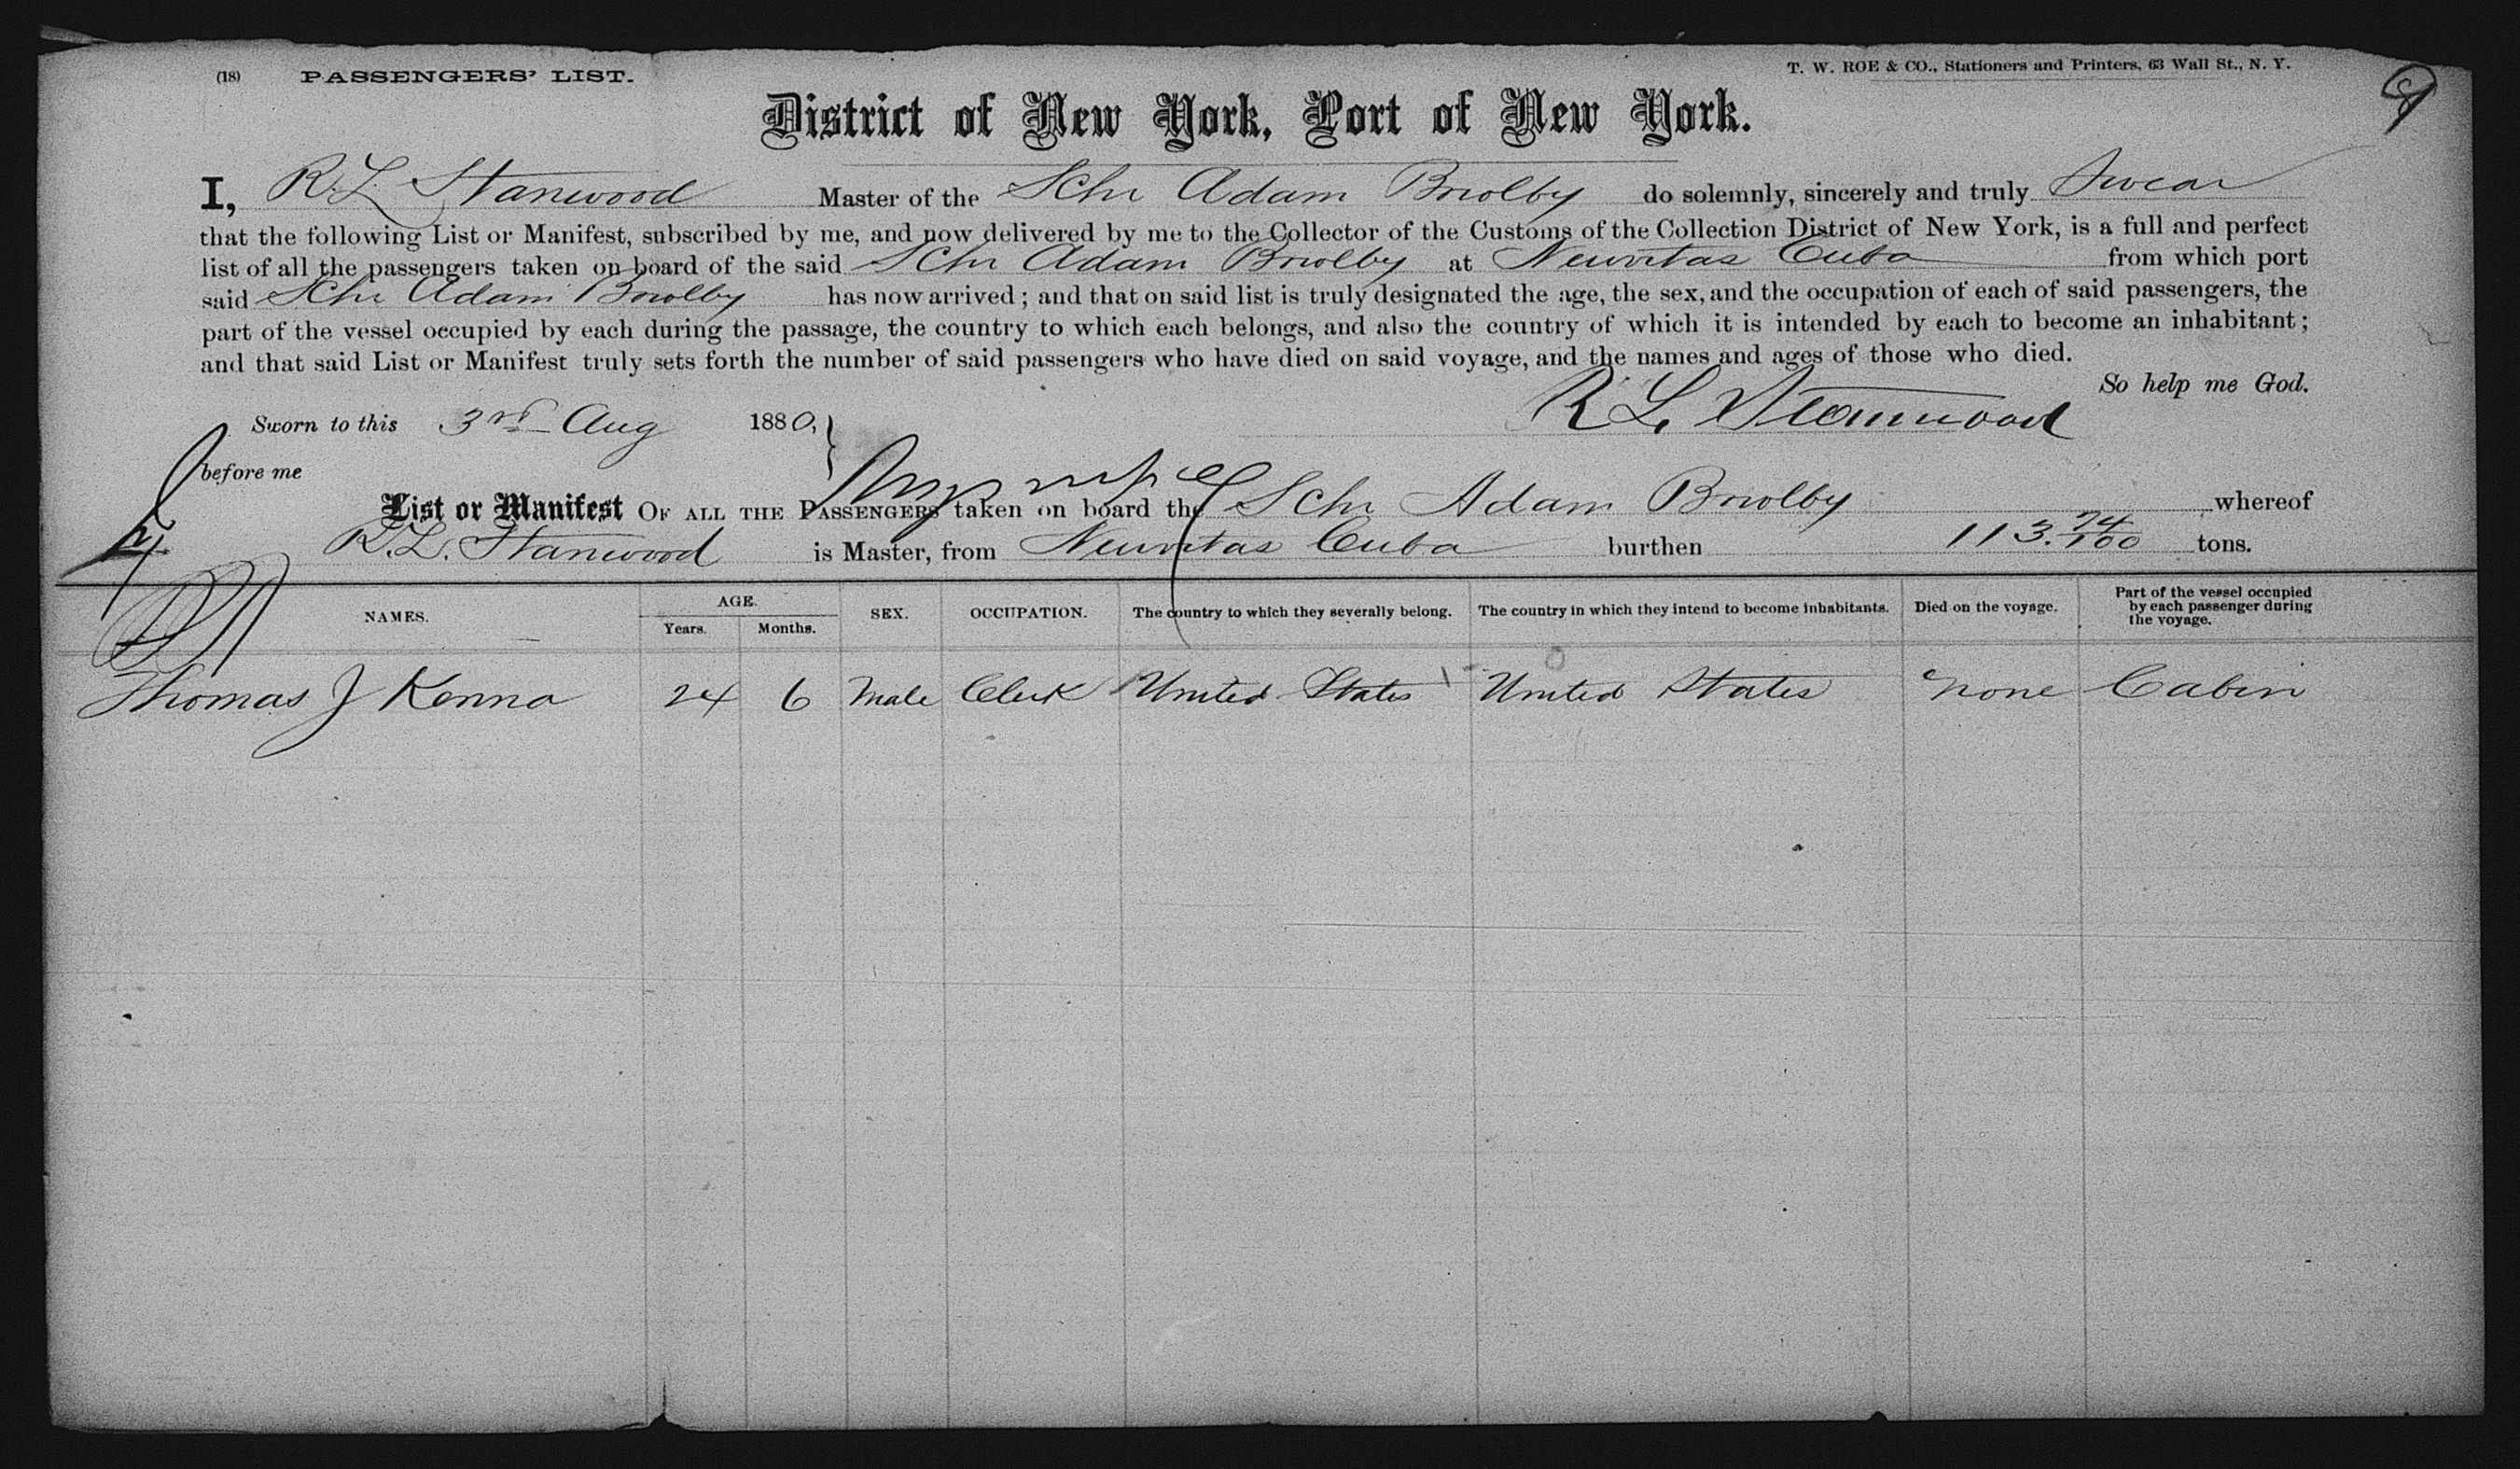 (18) PASSENGERS' LIST.
T. W. ROE & CO., Stationers and Printers, 63 Wall St., N. Y.
District of New York, Port of New York.
I, R. L. Stanwood Master of the Schr Adam Bowlby do solemnly, sincerely and truly Swear
that the following List or Manifest, subscribed by me, and now delivered by me to the Collector of the Customs of the Collection District of New York, is a full and perfect
list of all the passengers taken on board of the said Schr Adam Bowlby at Neuvitas Cuba from which port
said Schr Adam Bowlby has now arrived; and that on said list is truly designated the age, the sex, and the occupation of each of said passengers, the
part of the vessel occupied by each during the passage, the country to which each belongs, and also the country of which it is intended by each to become an inhabitant;
and that said List or Manifest truly sets forth the number of said passengers who have died on said voyage, and the names and ages of those who died.
So help me God.
Sworn to this 3rd Aug 1880,
R L Stanwood
before me
List or Manifest OF ALL THE PASSENGERS taken on board the Schr Adam Bowlby whereof
R. L. Stanwood is Master, from Neuvitas Cuba burthen 113. 74/100 tons.
NAMES. AGE. Years. Months. SEX. OCCUPATION. The country to which they severally belong. The country in which they intend to become inhabitants. Died on the voyage. Part of the vessel occupied by each passenger during the voyage.
Thomas J Kenna 24 6 Male Clerk United States United States none Cabin